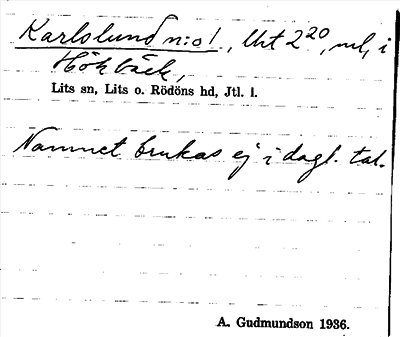 Karlslund n:o 1, Urt 2²⁰, ml, i
Hökbäck,
Lits sn, Lits o. Rödöns hd, Jtl. l.
Namnet brukas ej i dagl. tal.
A. Gudmundson 1936.